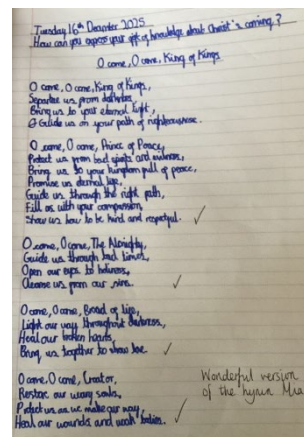 Tuesday 16th December 2025
How can you express your gift of knowledge about Christ's coming?
O come, O come, King of Kings
O come, O come, King of Kings,
Separate us from darkness,
Bring us to your eternal light,
& Guide us on your path of righteousness.
O come, O come, Prince of Peace,
Protect us from bad spirits and evilness,
Bring us to your kingdom full of peace,
Promise us eternal life,
Guide us through the right path,
Fill us with your compassion,
Show us how to be kind and respectful.
O come, O come, The Almighty,
Guide us through bad times,
Open our eyes to holiness,
Cleanse us from our sins.
O come, O come, Bread of life,
Light our way throughout darkness,
Heal our broken hearts,
Bring us together to show love.
O come, O come, Creator,
Restore our weary souls,
Protect us as we make our way,
Heal our wounds and weak bodies.
Wonderful version
of the hymn